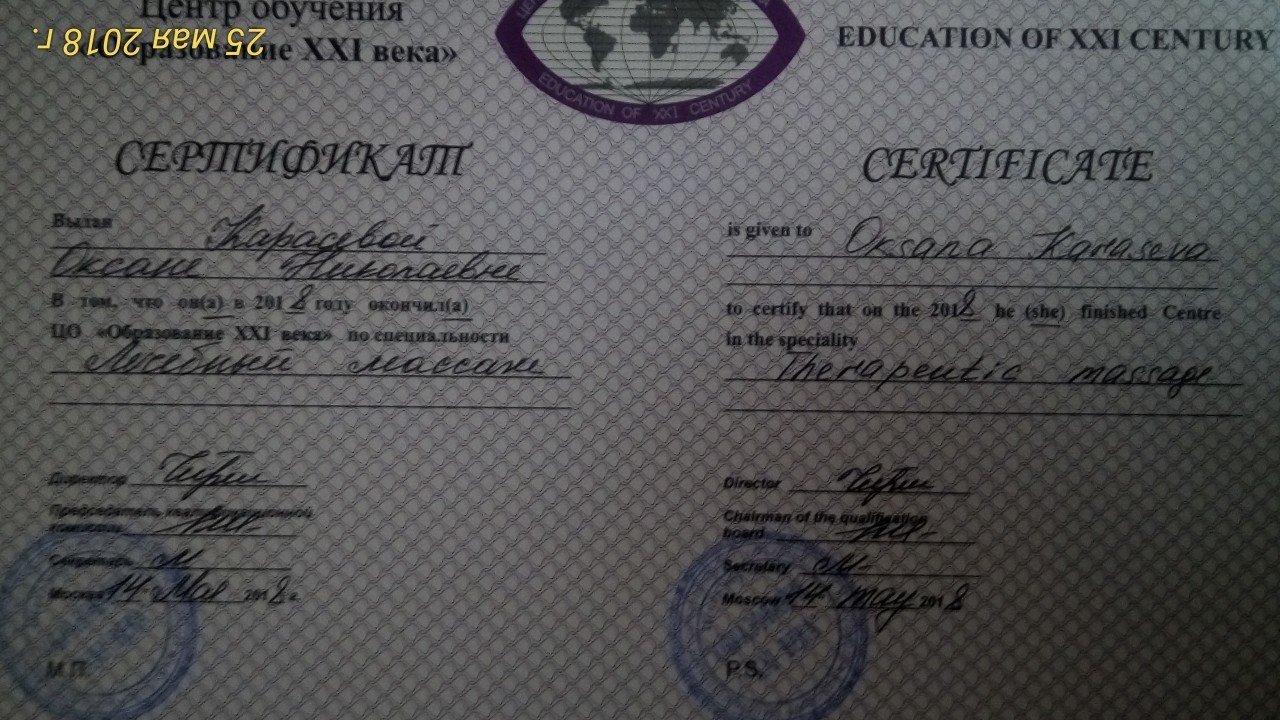 Центр обучения
25 мая 2018 г.
«Образование XXI века»
EDUCATION OF XXI CENTURY
EDUCATION OF XXI CENTURY
СЕРТИФИКАТ
Выдан Карасевой
Оксане Николаевне
В том, что он(а) в 2018 году окончил(а)
ЦО «Образование XXI века» по специальности
Лечебный массаж
Директор
Председатель квалификационной
комиссии
Секретарь
Москва 14 Мая 2018 г.
М.П.
CERTIFICATE
is given to Oksana Karaseva
to certify that on the 2018 he (she) finished Centre
in the speciality
Therapeutic massage
Director
Chairman of the qualification
board
Secretary
Moscow 14 may 2018
P.S.